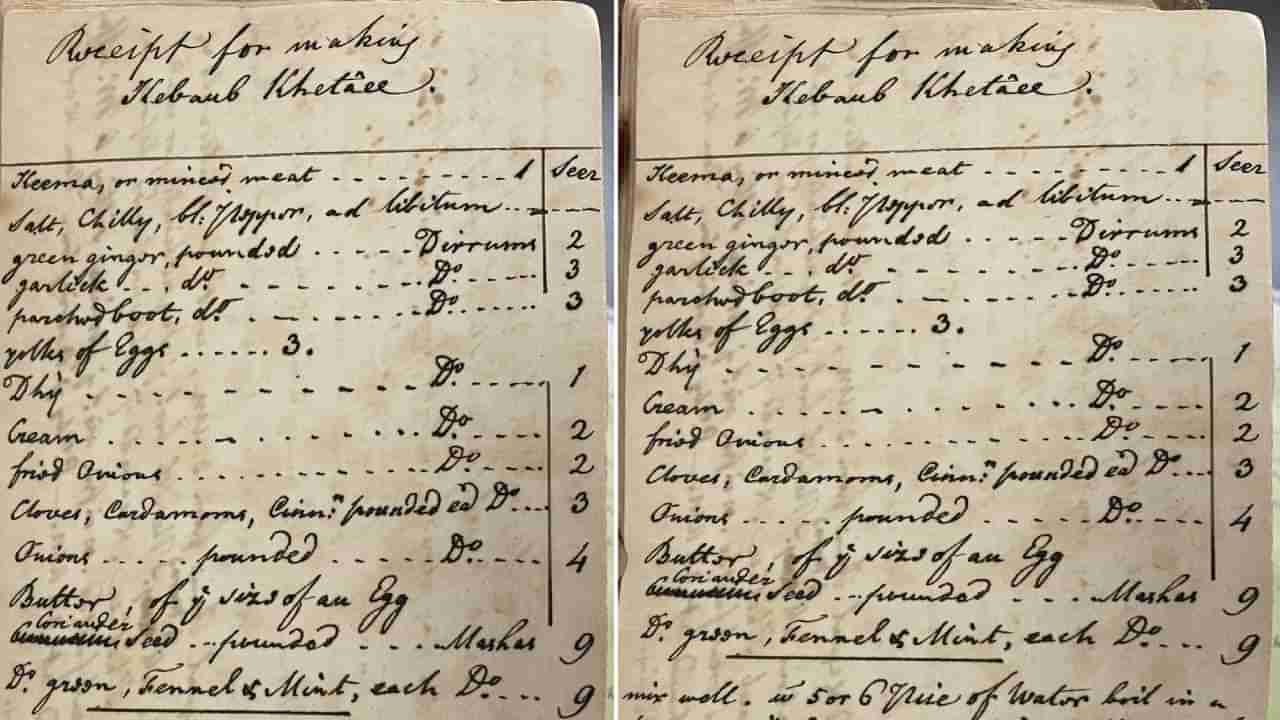 Receipt for making
Kebaub Khetâee.
Seer
Keema, or minced meat - - - - - - - - - 1
Salt, Chilly, bl: Pepper, ad libitum - - - - -
green ginger, pounded - - - - - Dirrums 2
garlick - - . do - - - - - - Do - - - - - 3
parched boot, do - - - - - - Do - - - - - 3
yolks of Eggs - - - - - - 3.
Dhy - - - - - - - - Do - - - - 1
Cream - - - - - - - - Do - - - - - 2
fried Onions - - - - - - - - Do - - - - - 2
Cloves, Cardamoms, Cinn:n pounded ea Do - - - 3
Onions - - - - - pounded - - - - - Do - - - - 4
Butter, of ye size of an Egg
Coriander
Seed - - pounded - - - - Mashas 9
Do green, Fennel & Mint, each Do - - - 9
Receipt for making
Kebaub Khetâee.
Seer
Keema, or minced meat - - - - - - - - - 1
Salt, Chilly, bl: Pepper, ad libitum - - - - -
green ginger, pounded - - - - - Dirrums 2
garlick - - . do - - - - - - Do - - - - - 3
parched boot, do - - - - - - Do - - - - - 3
yolks of Eggs - - - - - - 3.
Dhy - - - - - - - - Do - - - - 1
Cream - - - - - - - - Do - - - - - 2
fried Onions - - - - - - - - Do - - - - - 2
Cloves, Cardamoms, Cinn:n pounded ea Do - - - 3
Onions - - - - - pounded - - - - - Do - - - - 4
Butter, of ye size of an Egg
Coriander
Seed - - pounded - - - - Mashas 9
Do green, Fennel & Mint, each Do - - - 9
mix well. in 5 or 6 Price of Water boil in a